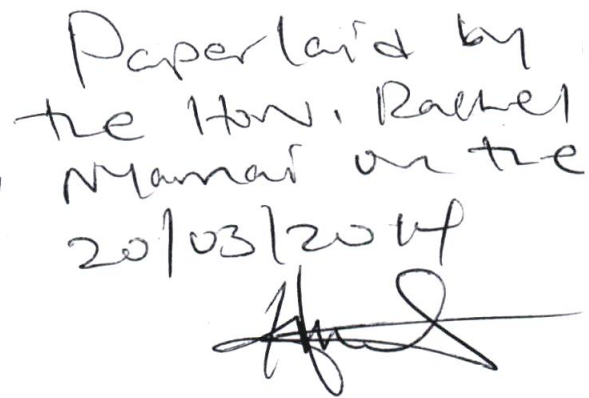 Paper laid by
the Hon. Rachel
Nyamai on the
20/03/2014